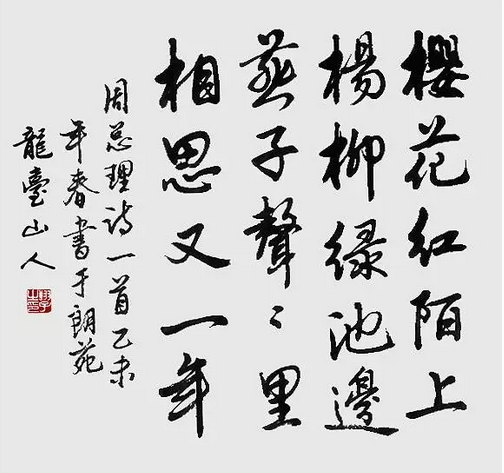 櫻花红陌上
楊柳緑池邊
燕子聲〻里
相思又一年
周总理诗一首乙未
年春書于朗苑
龍臺山人